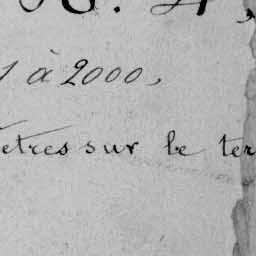 1 à 2000,
etres sur le ter